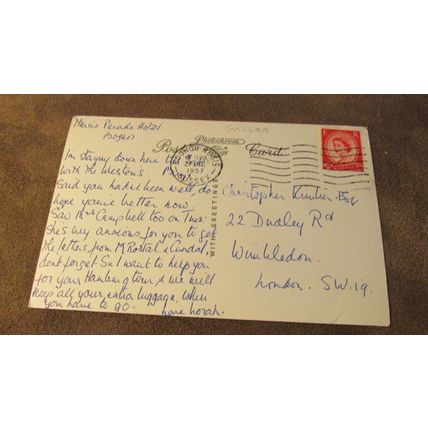 Marine Parade Hotel
Bognor
SUSSEX
Photochrom
Post Card
BOGNOR REGIS
1957
SUSSEX
WITH GREETINGS
I'm staying down here
with the Westons.
Said you hadn't been well, do
hope you're better now.
Saw Mrs Campbell too on Tues.
She's very anxious for you to get
the letters from Mr Rostal & Cundal,
don't forget. So I want to help you
for your Hamburg tour, & we will
keep all your extra luggage, when
you have to go.
Love Norah.
Christopher Esq
22 Dudley Rd
Wimbledon.
London. S.W.19.